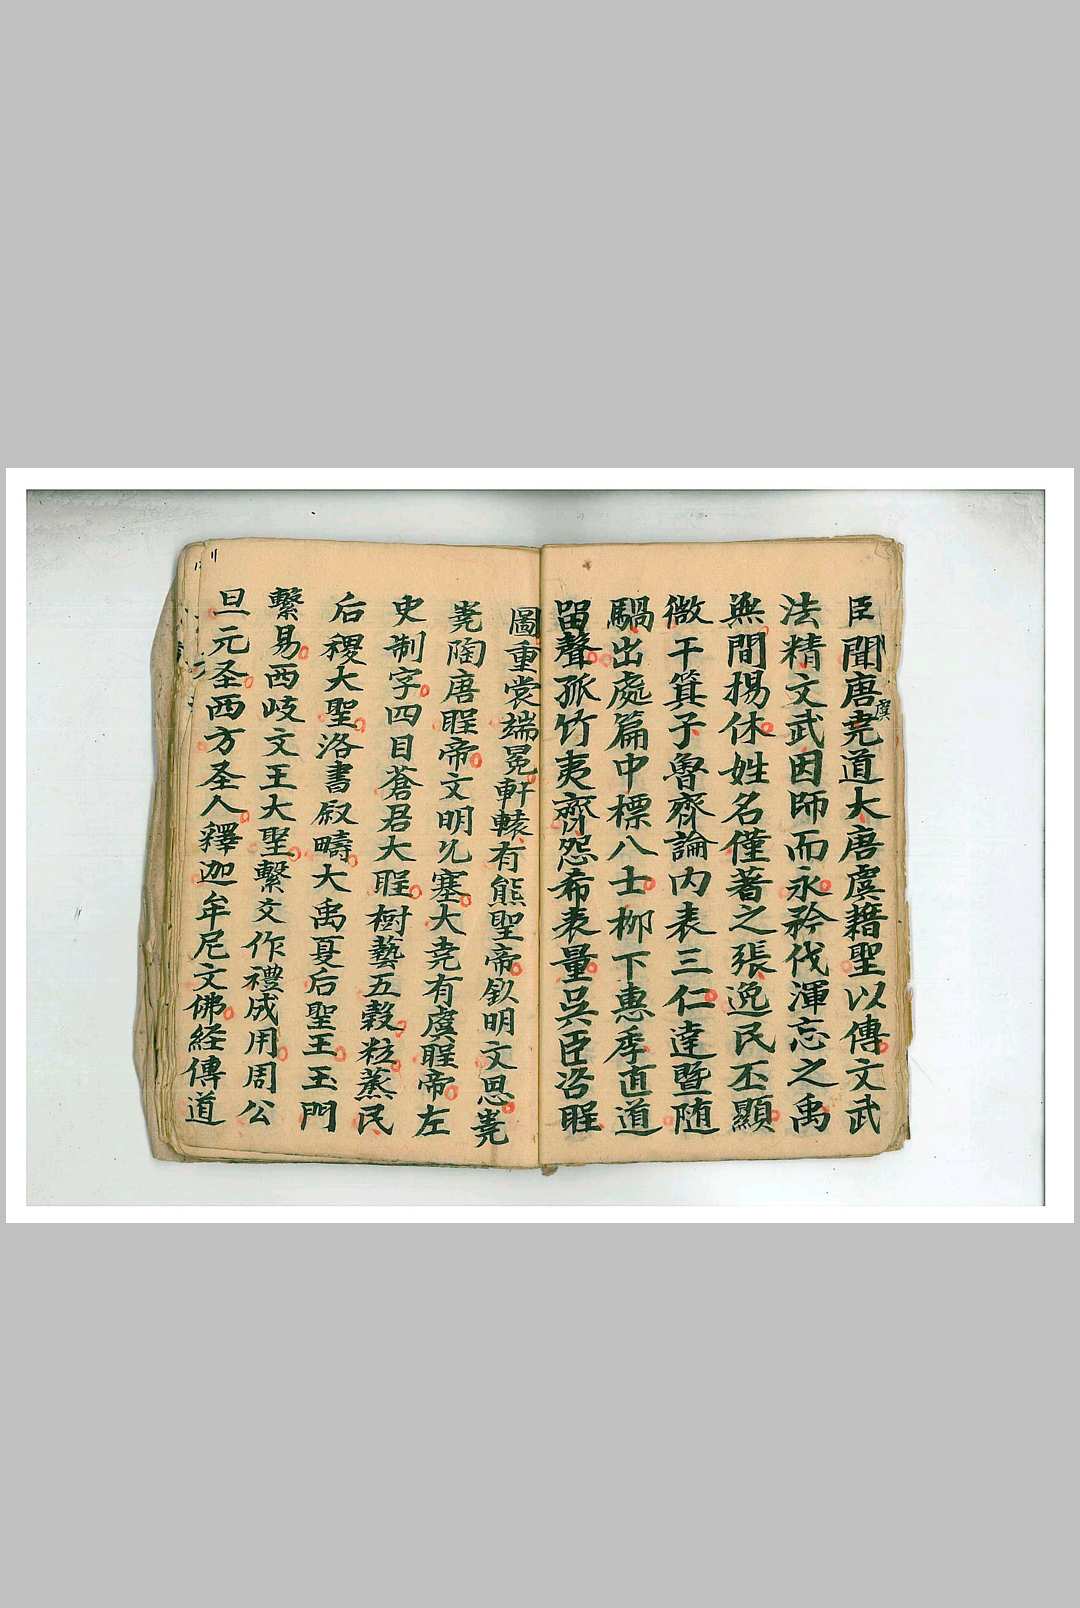 臣聞唐堯道大唐虞藉聖以傳文武
虞
法精文武因師而永矜伐渾忘之禹
無間揚休姓名僅著之張逸民丕顯
微干箕子魯齊論內表三仁達暨随
騧出處篇中標八士柳下惠季直道
留聲孤竹夷齊怨希表量吳臣咨
圖重裳端冕軒轅有熊聖帝欽明文思堯
堯陶唐帝文明允塞大堯有虞帝左
史制字四目蒼君大樹藝五穀粒蒸民
后稷大聖洛書叙疇大禹夏后聖王玉門
繫易西岐文王大聖繫文作禮成用周公
旦元圣西方圣人釋迦牟尼文佛経傳道